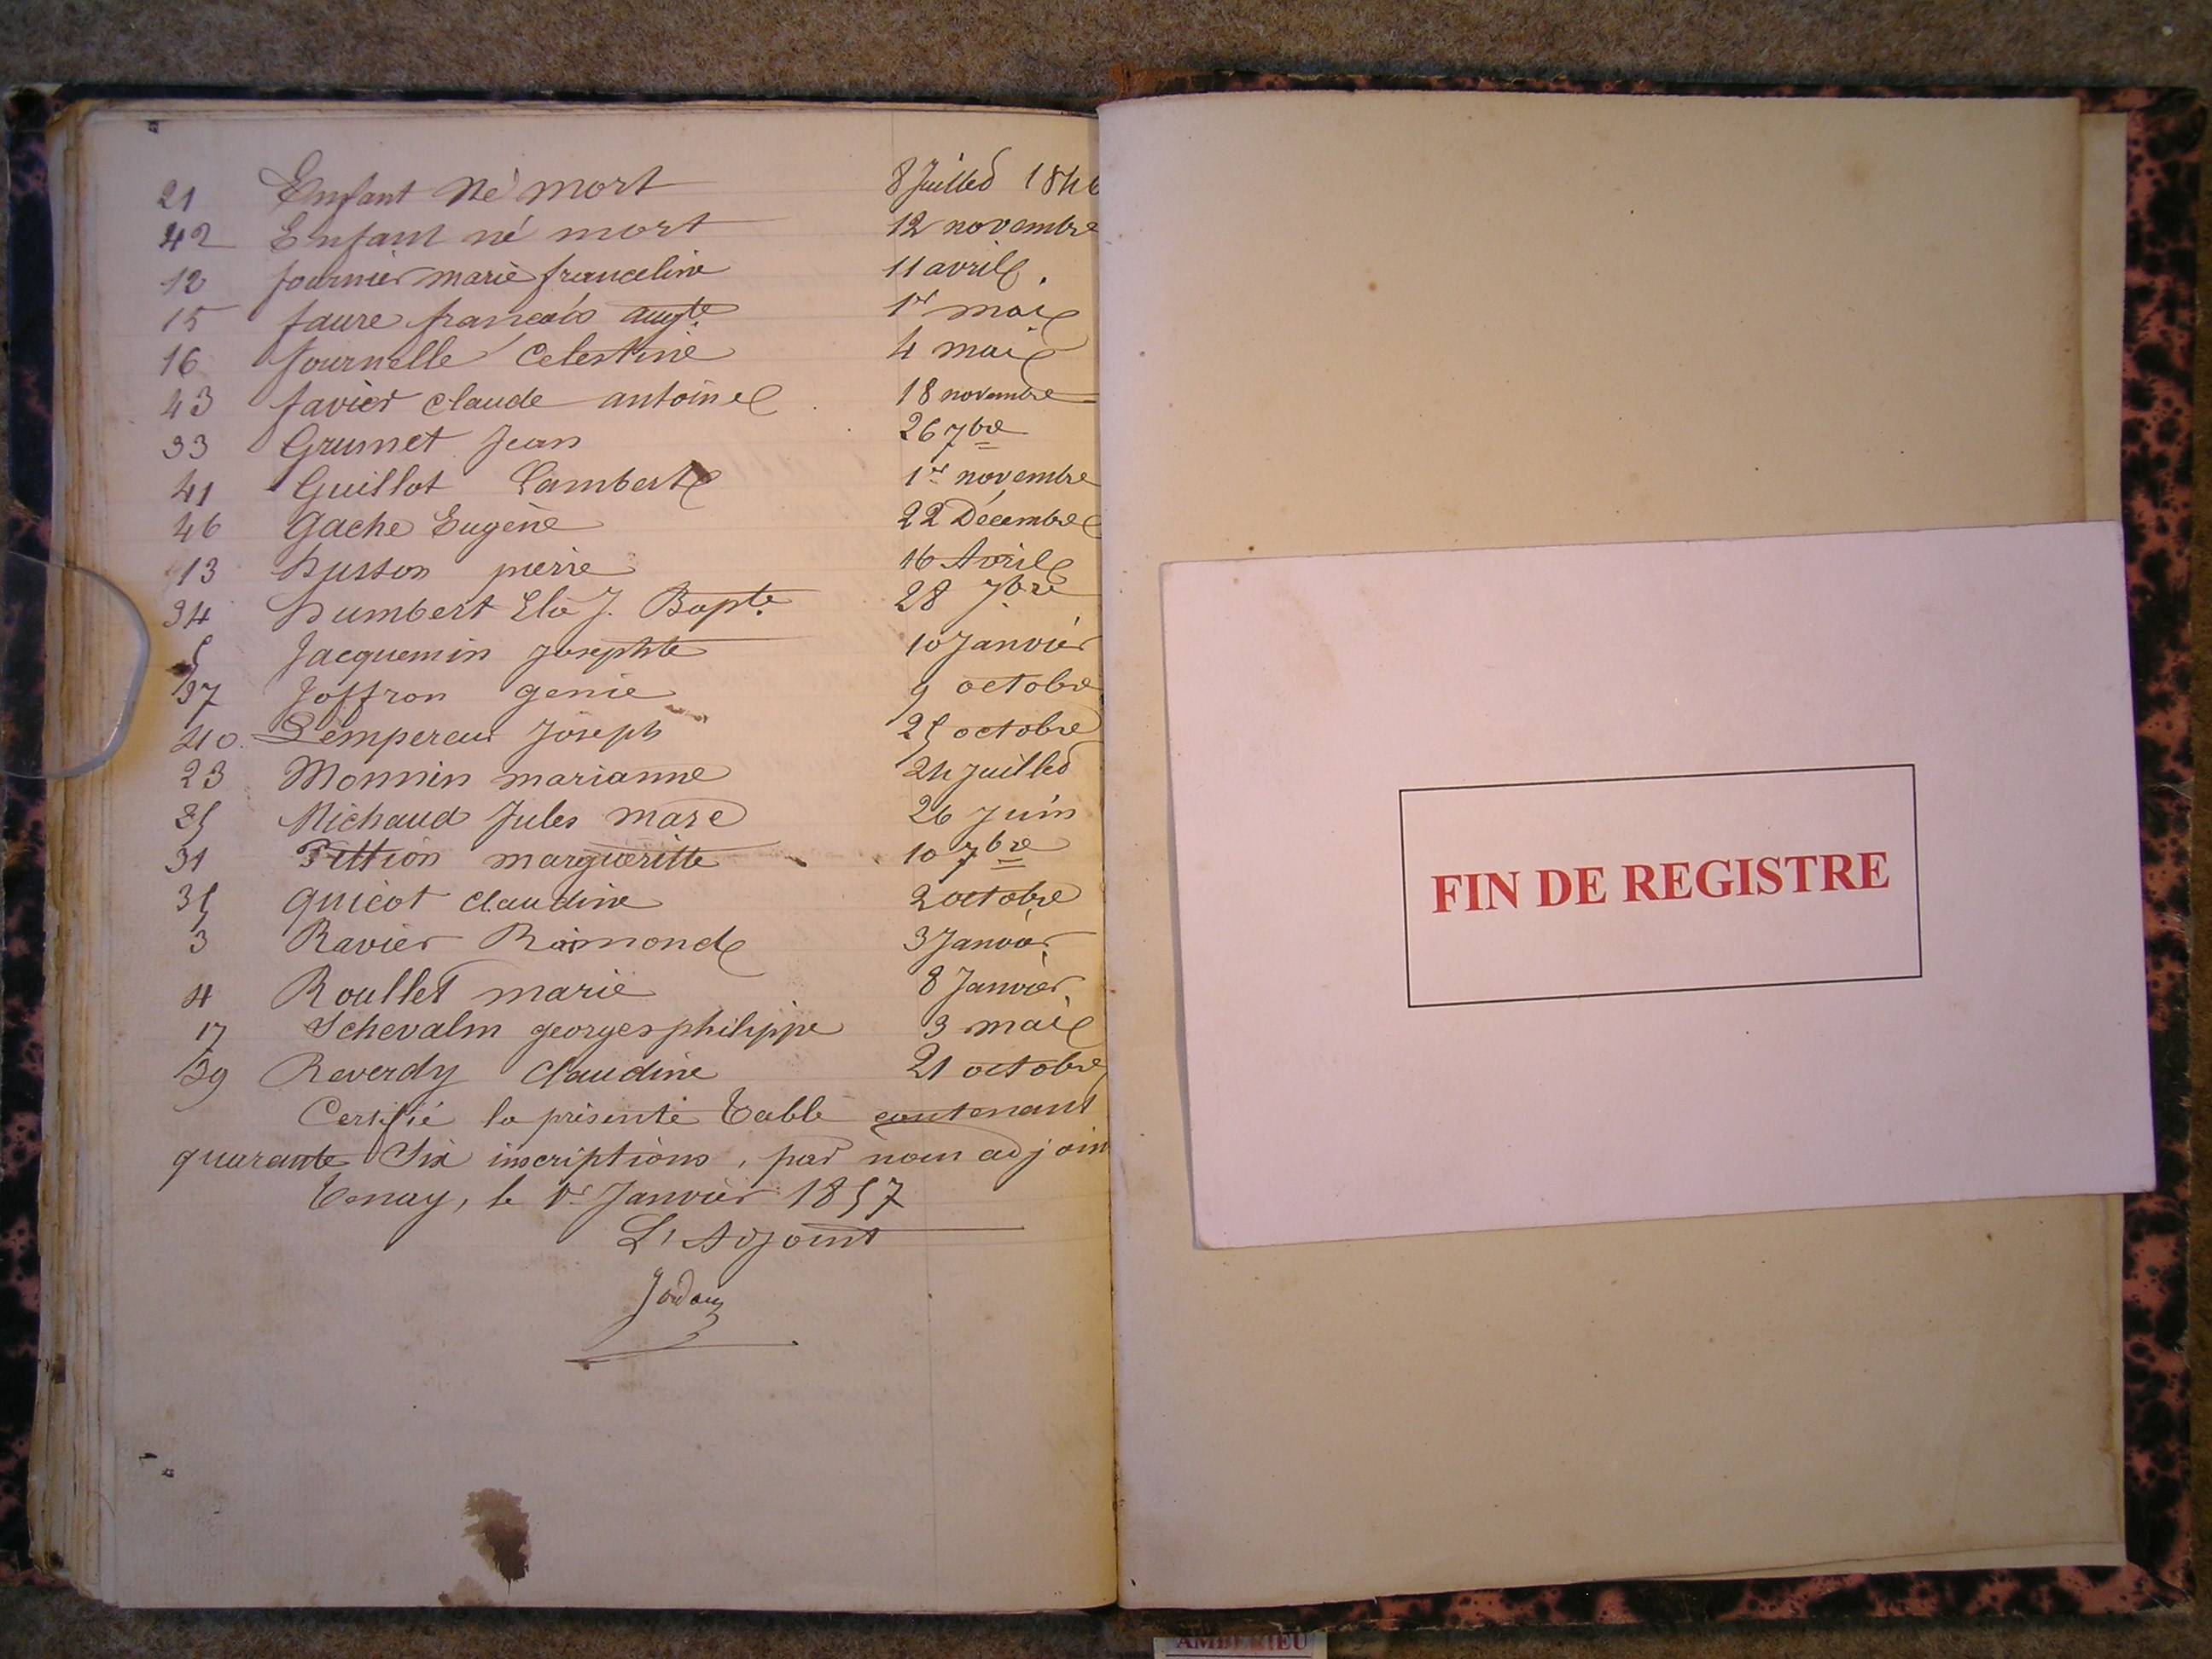 21 Enfant Né mort 8 Juillet 1846
42 Enfant né mort 12 novembre
12 fournier marie franceline 11 avril.
15 faure francois augte 1er mai
16 fournelle Celestine 4 mai
43 favier Claude antoine 18 novembre
33 Grumet Jean 26 7bre
41 Guillot Lambert 1er novembre
46 Gache Eugène 22 Décembre
13 husson pierre 16 Avril
34 humbert J. Bapte 28 7bre
5 Jacquemin Josephte 10 Janvier
37 Joffron genie 9 octobre
40. Lempereur Joseph 25 octobre
23 Monnin marianne 24 Juillet
25 Michaud Jules marc 26 Juin
31 Pittion margueritte 10 7bre
35 quicot claudine 2 octobre
3 Ravier Raimond 3 Janvier
4 Roullet marie 8 Janvier
17 Schevalm georges philippe 3 mai
39 Reverdy Claudine 21 octobre
Certifié la présente Table contenant
quarante Six inscriptions, par nous adjoin
Tenay, le 1er Janvier 1857
L'Adjoint
FIN DE REGISTRE
AMBERIEU